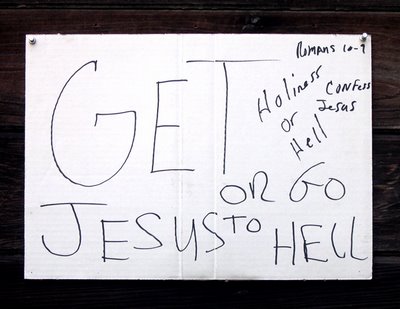 ROMANS 10-9
GET
Holiness
or
Hell
CONFESS
Jesus
OR GO
JESUS TO HELL